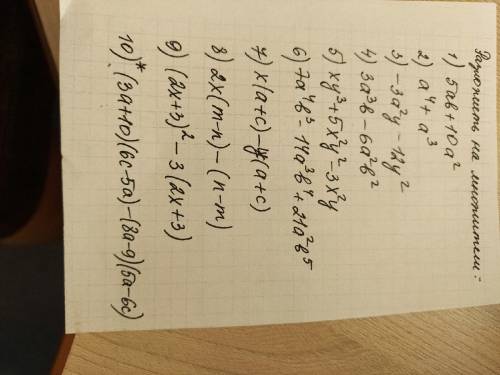 Разложить на множители:
1) 5ab + 10a²
2) a⁴ + a³
3) -3a²y - 12y²
4) 3a³b - 6a²b²
5) xy³ + 5x²y² - 3x²y
6) 7a⁴b³ - 14a³b⁴ + 21a²b⁵
7) x(a+c) - 4(a+c)
8) 2x(m-n) - (n-m)
9) (2x+3)² - 3(2x+3)
10)* (3a+10)(6c-5a) - (8a-9)(5a-6c)